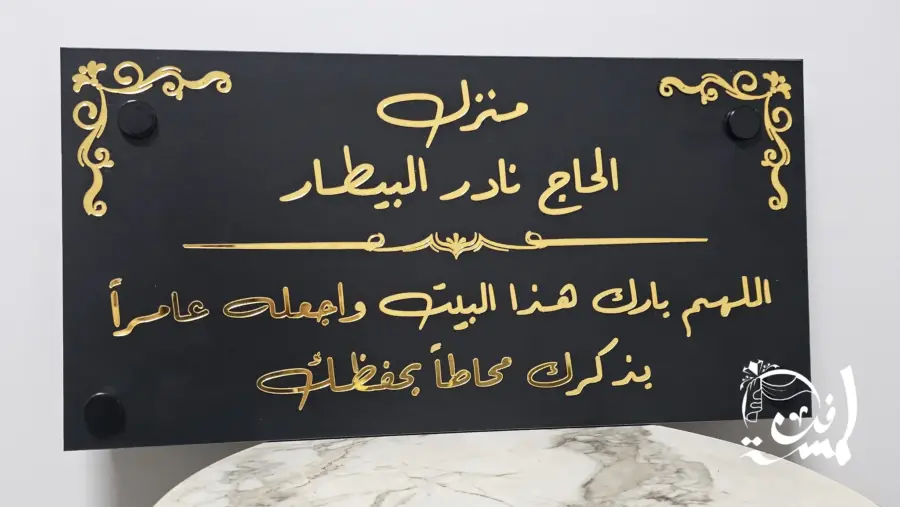 منزل
الحاج نادر البيطار
اللهم بارك هذا البيت واجعله عامراً
بذكرك محاطاً بحفظك